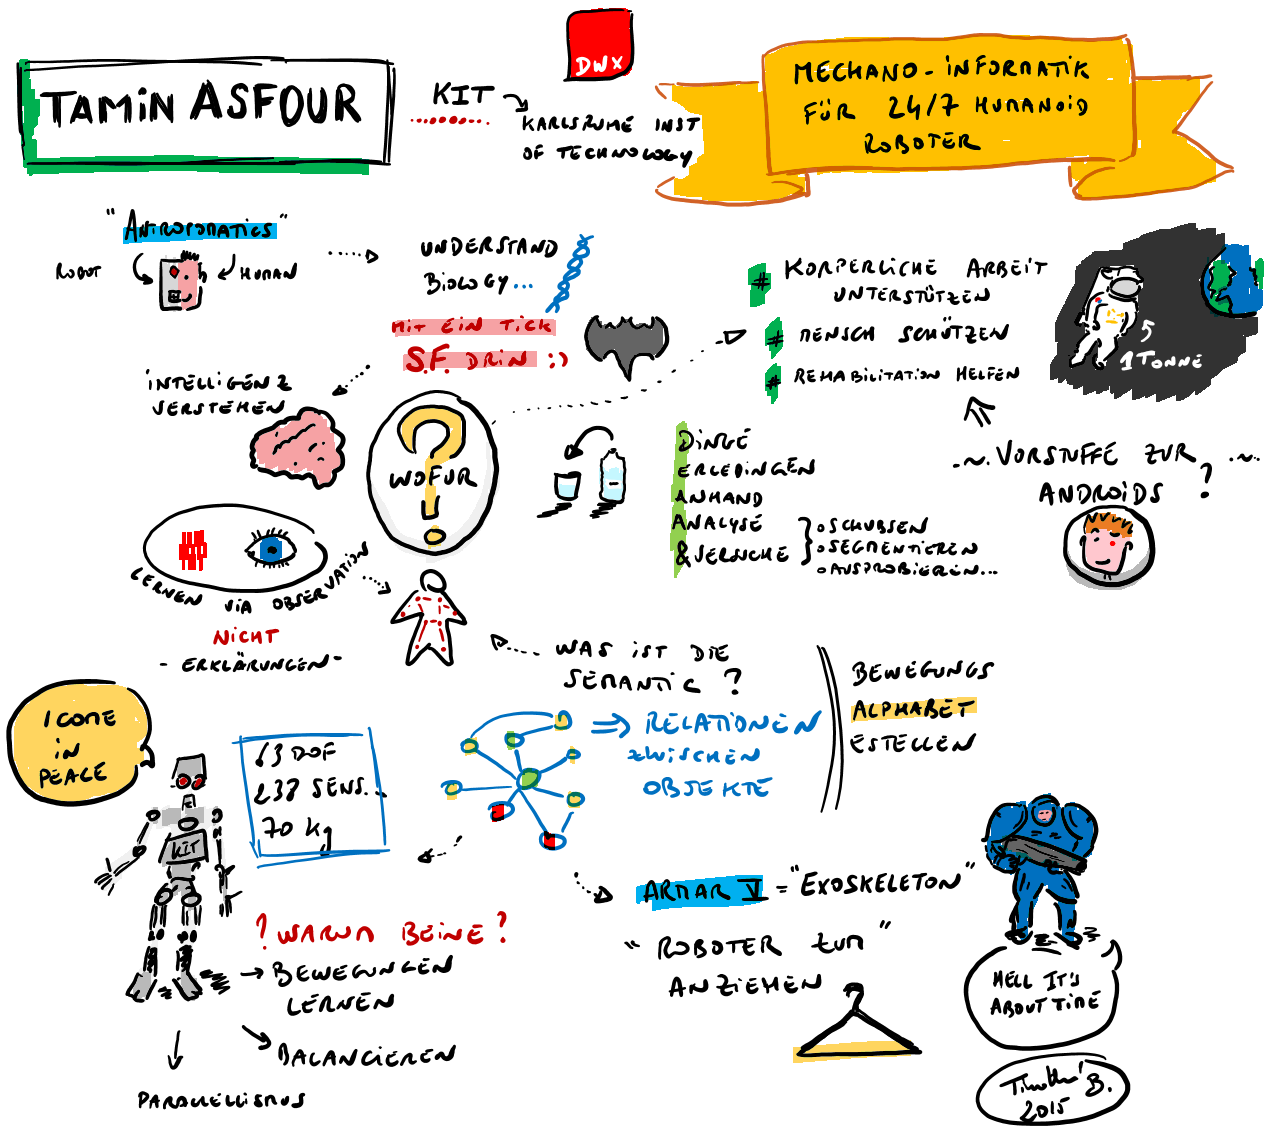 TAMIN ASFOUR
KIT
DWX
KARLSRUHE INST
OF TECHNOLOGY
MECHANO-INFORMATIK
FÜR 24/7 HUMANOID
ROBOTER
"ANTROPOMATICS"
ROBOT
HUMAN
UNDERSTAND
BIOLOGY...
MIT EIN TICK
S.F. DRIN :)
INTELLIGENZ
VERSTEHEN
WOFUR
?
# KORPERLICHE ARBEIT
UNTERSTÜTZEN
# MENSCH SCHÜTZEN
# REHABILITATION HELFEN
1 TONNE
DINGE
ERLEDINGEN
ANHAND
ANALYSE
& VERSUCHE
o SCHUBSEN
o SEGMENTIEREN
o AUSPROBIEREN...
.~. VORSTUFFE ZUR .~.
ANDROIDS ?
LERNEN VIA OBSERVATION
NICHT
- ERKLÄRUNGEN -
WAS IST DIE
SEMANTIC ?
=> RELATIONEN
ZWISCHEN
OBJEKTE
BEWEGUNGS
ALPHABET
ESTELLEN
I COME
IN
PEACE
63 DOF
238 SENS...
70 kg
KIT
? WARUM BEINE ?
→ BEWEGUNGEN
LERNEN
BALANCIEREN
PARALLELISMUS
ARMAR V = "EXOSKELETON"
"ROBOTER ZUM"
ANZIEHEN
HELL IT'S
ABOUT TIME
B.
2015